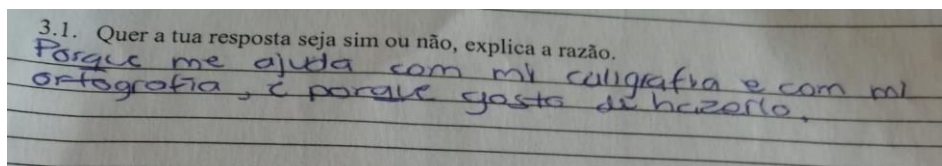 3.1. Quer a tua resposta seja sim ou não, explica a razão.
Porque me ajuda com mi caligrafia e com mi
ortografia, e porque gosto de hazerlo.